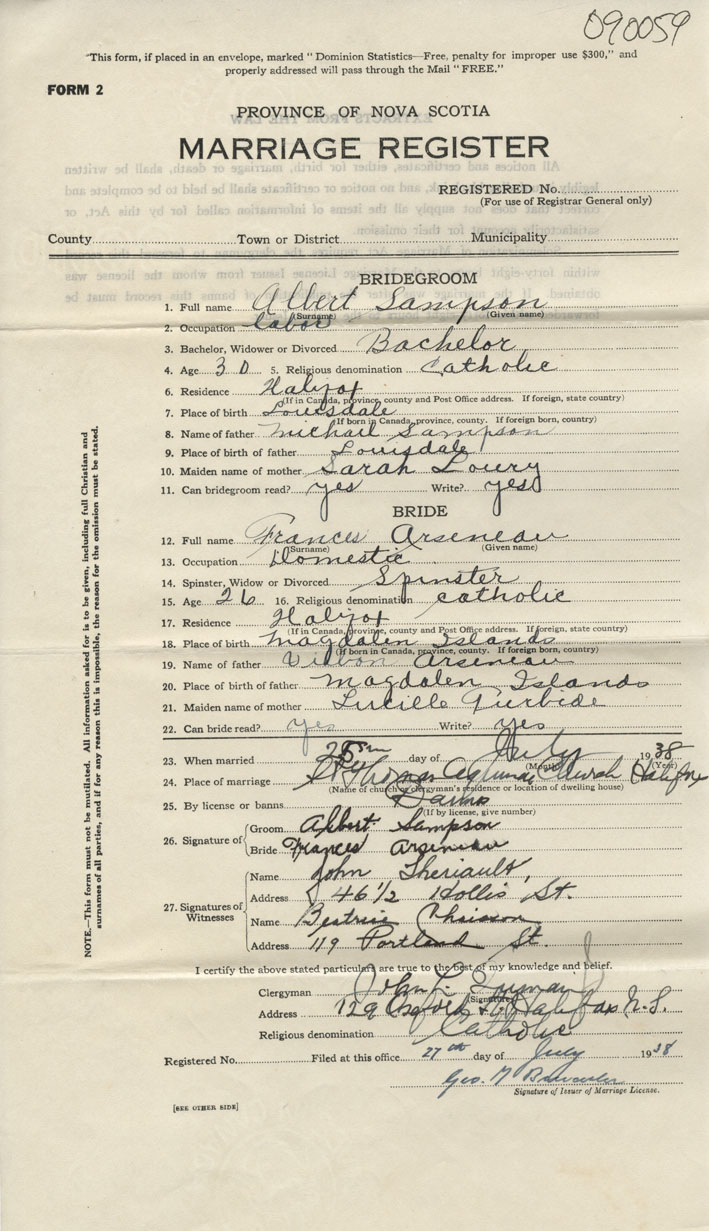 090059
"This form, if placed in an envelope, marked "Dominion Statistics—Free, penalty for improper use $300," and
properly addressed will pass through the Mail "FREE."
FORM 2
PROVINCE OF NOVA SCOTIA
MARRIAGE REGISTER
REGISTERED No.
(For use of Registrar General only)
County Town or District Municipality
BRIDEGROOM
1. Full name Albert Sampson
(Surname) (Given name)
2. Occupation labor
3. Bachelor, Widower or Divorced Bachelor
4. Age 30 5. Religious denomination Catholic
6. Residence Halifax
(If in Canada, province, county and Post Office address. If foreign, state country)
7. Place of birth Louisdale
(If born in Canada, province, county. If foreign born, country)
8. Name of father Michail Sampson
9. Place of birth of father Louisdale
10. Maiden name of mother Sarah Loury
11. Can bridegroom read? yes Write? yes
BRIDE
12. Full name Frances Arseneau
(Surname) (Given name)
13. Occupation Domestic
14. Spinster, Widow or Divorced Spinster
15. Age 26 16. Religious denomination catholic
17. Residence Halifax
(If in Canada, province, county and Post Office address. If foreign, state country)
18. Place of birth Magdalen Islands
(If born in Canada, province, county. If foreign born, country)
19. Name of father Arseneau
20. Place of birth of father Magdalen Islands
21. Maiden name of mother Lucille
22. Can bride read? yes Write? yes
23. When married 25 day of July 1938
(Month) (Year)
24. Place of marriage St Thomas Church Halifax
(Name of church or clergyman's residence or location of dwelling house)
25. By license or banns Banns
(If by license, give number)
26. Signature of Groom Albert Sampson
Bride Frances Arseneau
27. Signatures of Witnesses Name John Theriault,
Address 46 1/2 Hollis St.
Name Beatrice Chiasson
Address 119 Portland St.
I certify the above stated particulars are true to the best of my knowledge and belief.
Clergyman John L.
(Signature)
Address 129 Oxford St. Halifax N.S.
Religious denomination Catholic
Registered No. Filed at this office 27th day of July 1938
Geo. M
Signature of Issuer of Marriage License.
[SEE OTHER SIDE]
NOTE.—This form must not be mutilated. All information asked for is to be given, including full Christian and
surnames of all parties, and if for any reason this is impossible, the reason for the omission must be stated.